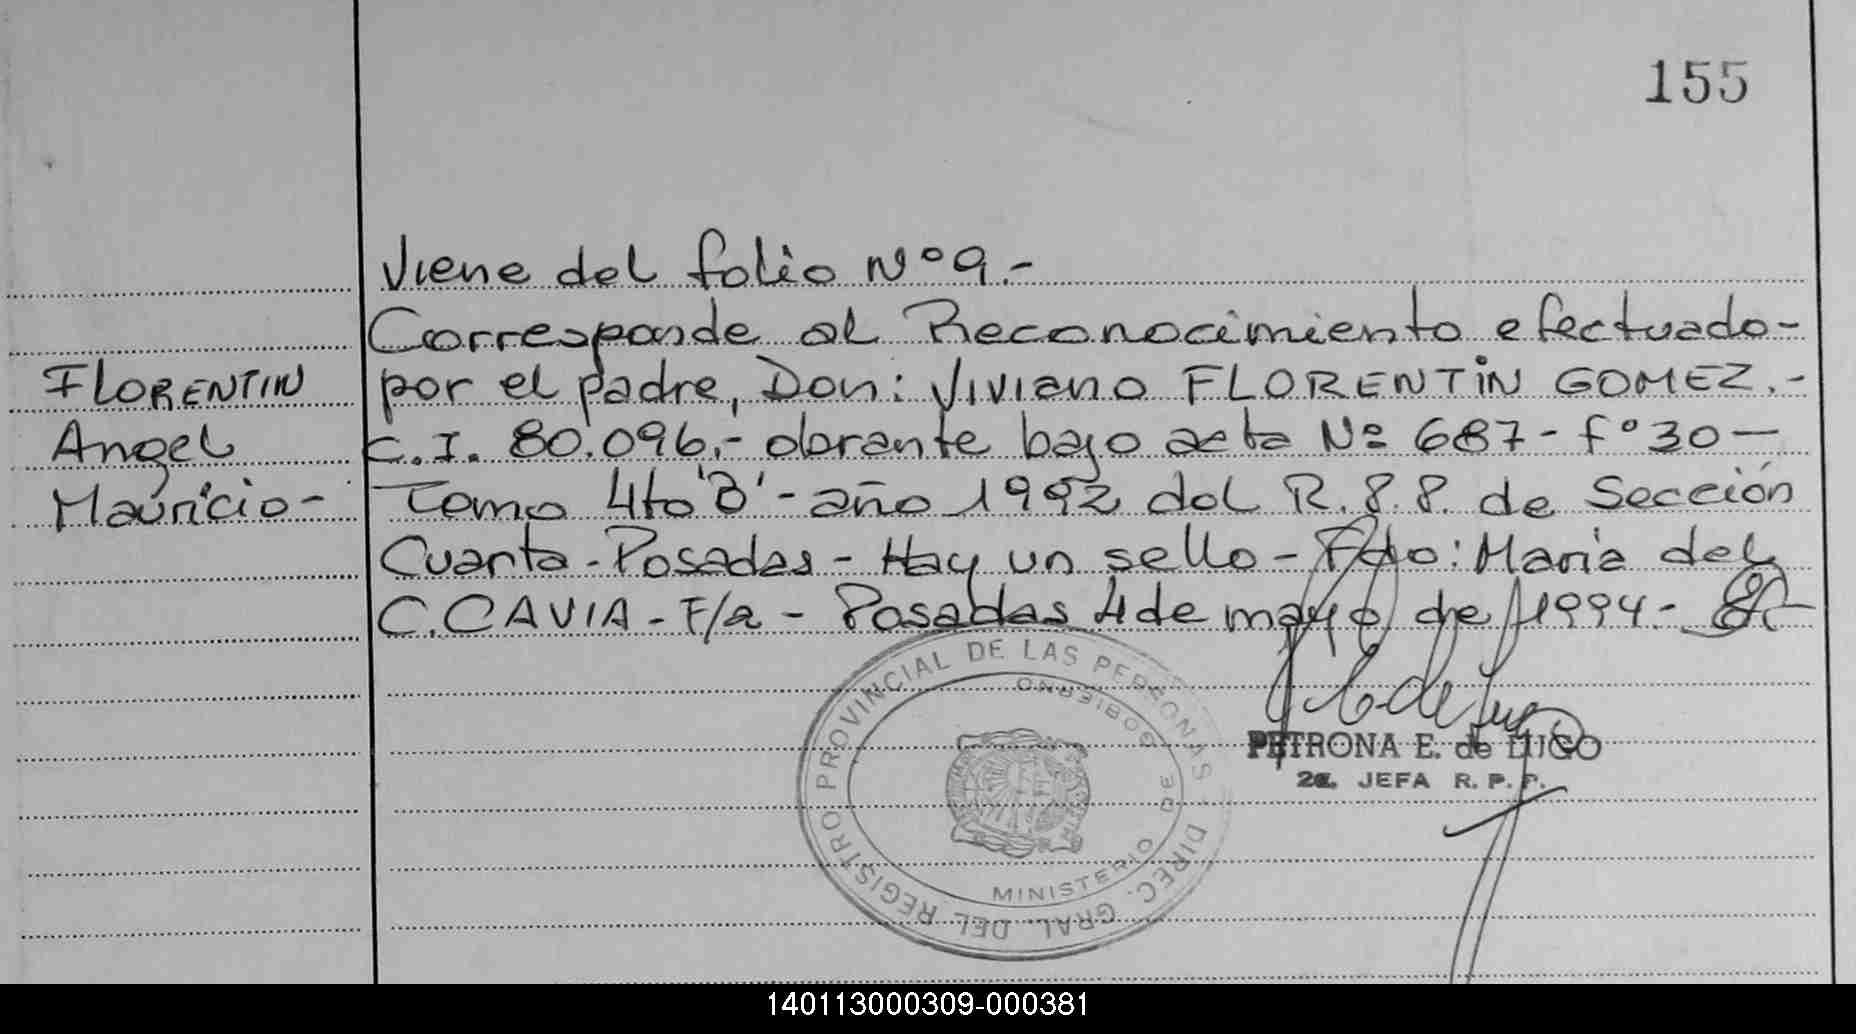 155
Viene del folio Nº 9.-
Corresponde al Reconocimiento efectuado-
FLORENTIN
por el padre, Don: Viviano FLORENTIN GOMEZ.-
Angel
C.I. 80.096.- obrante bajo acta Nº 687- fº 30-
Mauricio-
Tomo 4to 'B'- año 1992 del R.P.P. de Sección
Cuarta-Posadas- Hay un sello- Fdo: Maria del
C. CAVIA- F/a- Posadas 4 de mayo de 1994.-
DIREC. GRAL. DEL REGISTRO PROVINCIAL DE LAS PERSONAS
MINISTERIO DE GOBIERNO
PETRONA E. de LUGO
2a. JEFA R. P. P.
140113000309-000381